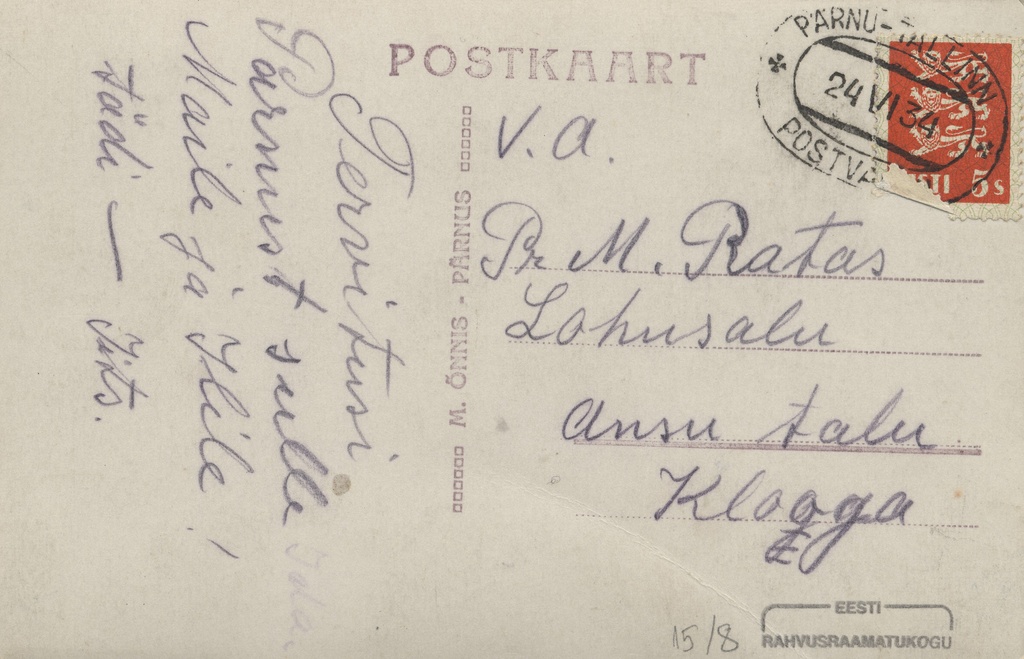 POSTKAART
PÄRNU-TALLINN
24 VI 34
POSTVA
EESTI 5 s
Tervitusi
Pärnust sulle
Maile ja Ilile!
tädi —
M. ÕNNIS - PÄRNUS
V. A.
Pr M. Ratas
Lohusalu
Ansu talu
Klooga
15/8
EESTI
RAHVUSRAAMATUKOGU